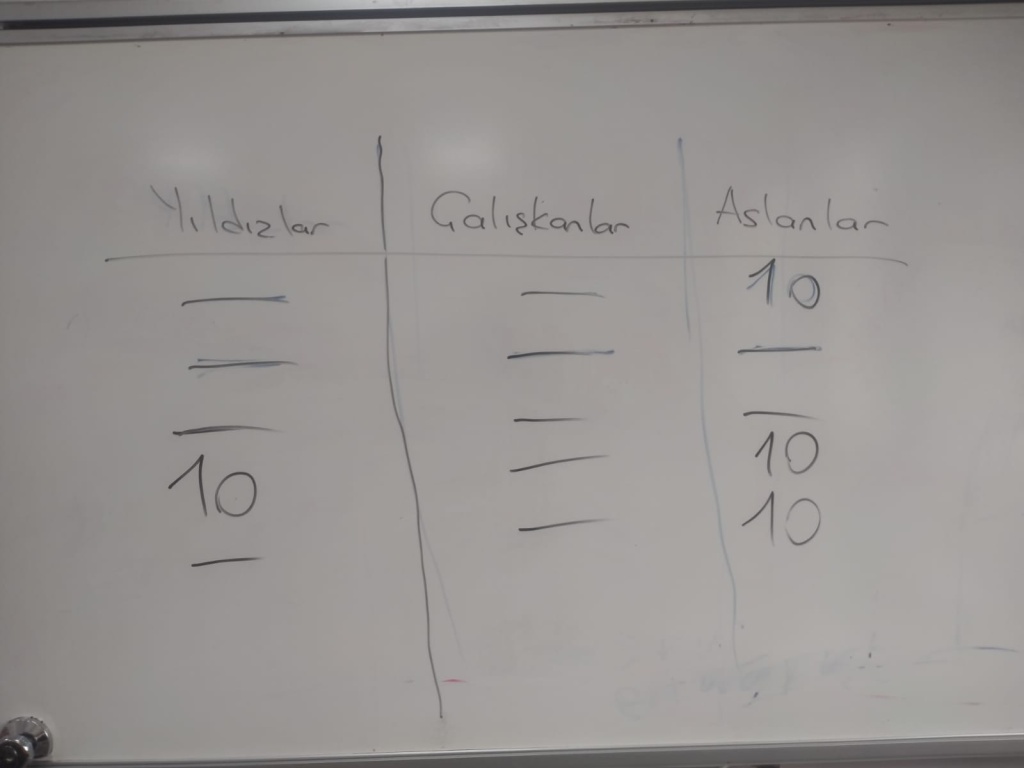 Yıldızlar Çalışkanlar Aslanlar
— — 10
— — —
— — —
10 — 10
— — 10